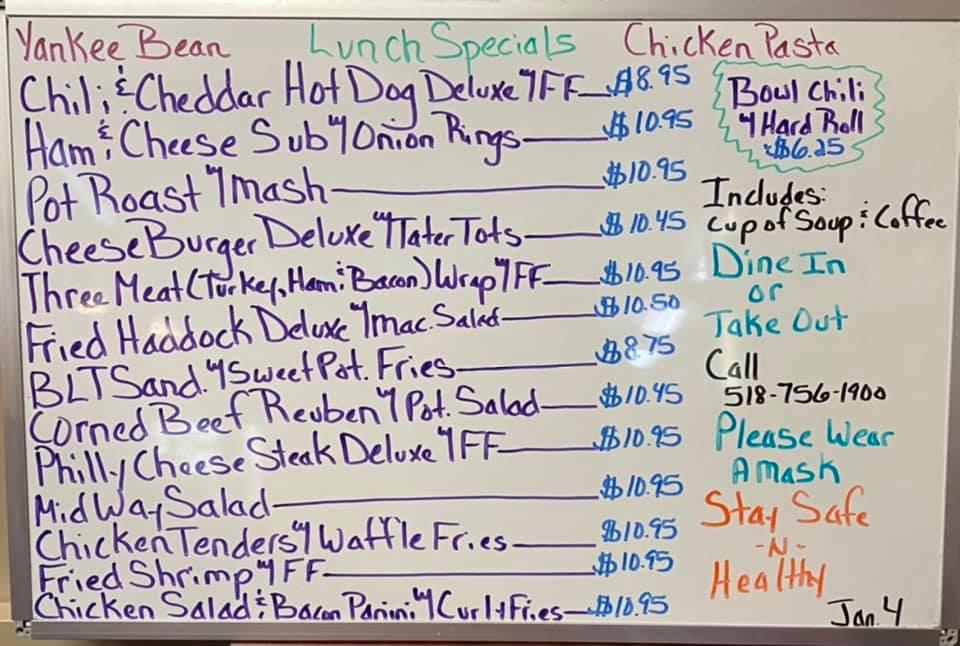 Yankee Bean Lunch Specials Chicken Pasta
Chili & Cheddar Hot Dog Deluxe w/ FF $8.95
Ham & Cheese Sub w/ Onion Rings $10.95
Pot Roast w/ Mash $10.95
Cheese Burger Deluxe w/ Tater Tots $10.45
Three Meat (Turkey, Ham & Bacon) Wrap w/ FF $10.95
Fried Haddock Deluxe w/ Mac. Salad $10.50
BLT Sand. w/ Sweet Pot. Fries $8.75
Corned Beef Reuben w/ Pot. Salad $10.45
Philly Cheese Steak Deluxe w/ FF $10.95
MidWay Salad $10.95
Chicken Tenders w/ Waffle Fries $10.95
Fried Shrimp w/ FF $10.95
Chicken Salad & Bacon Panini w/ Curly Fries $10.95
Bowl Chili
w/ Hard Roll
$6.25
Includes:
Cup of Soup & Coffee
Dine In
or
Take Out
Call
518-756-1900
Please Wear
A Mask
Stay Safe
-N-
Healthy
Jan. 4